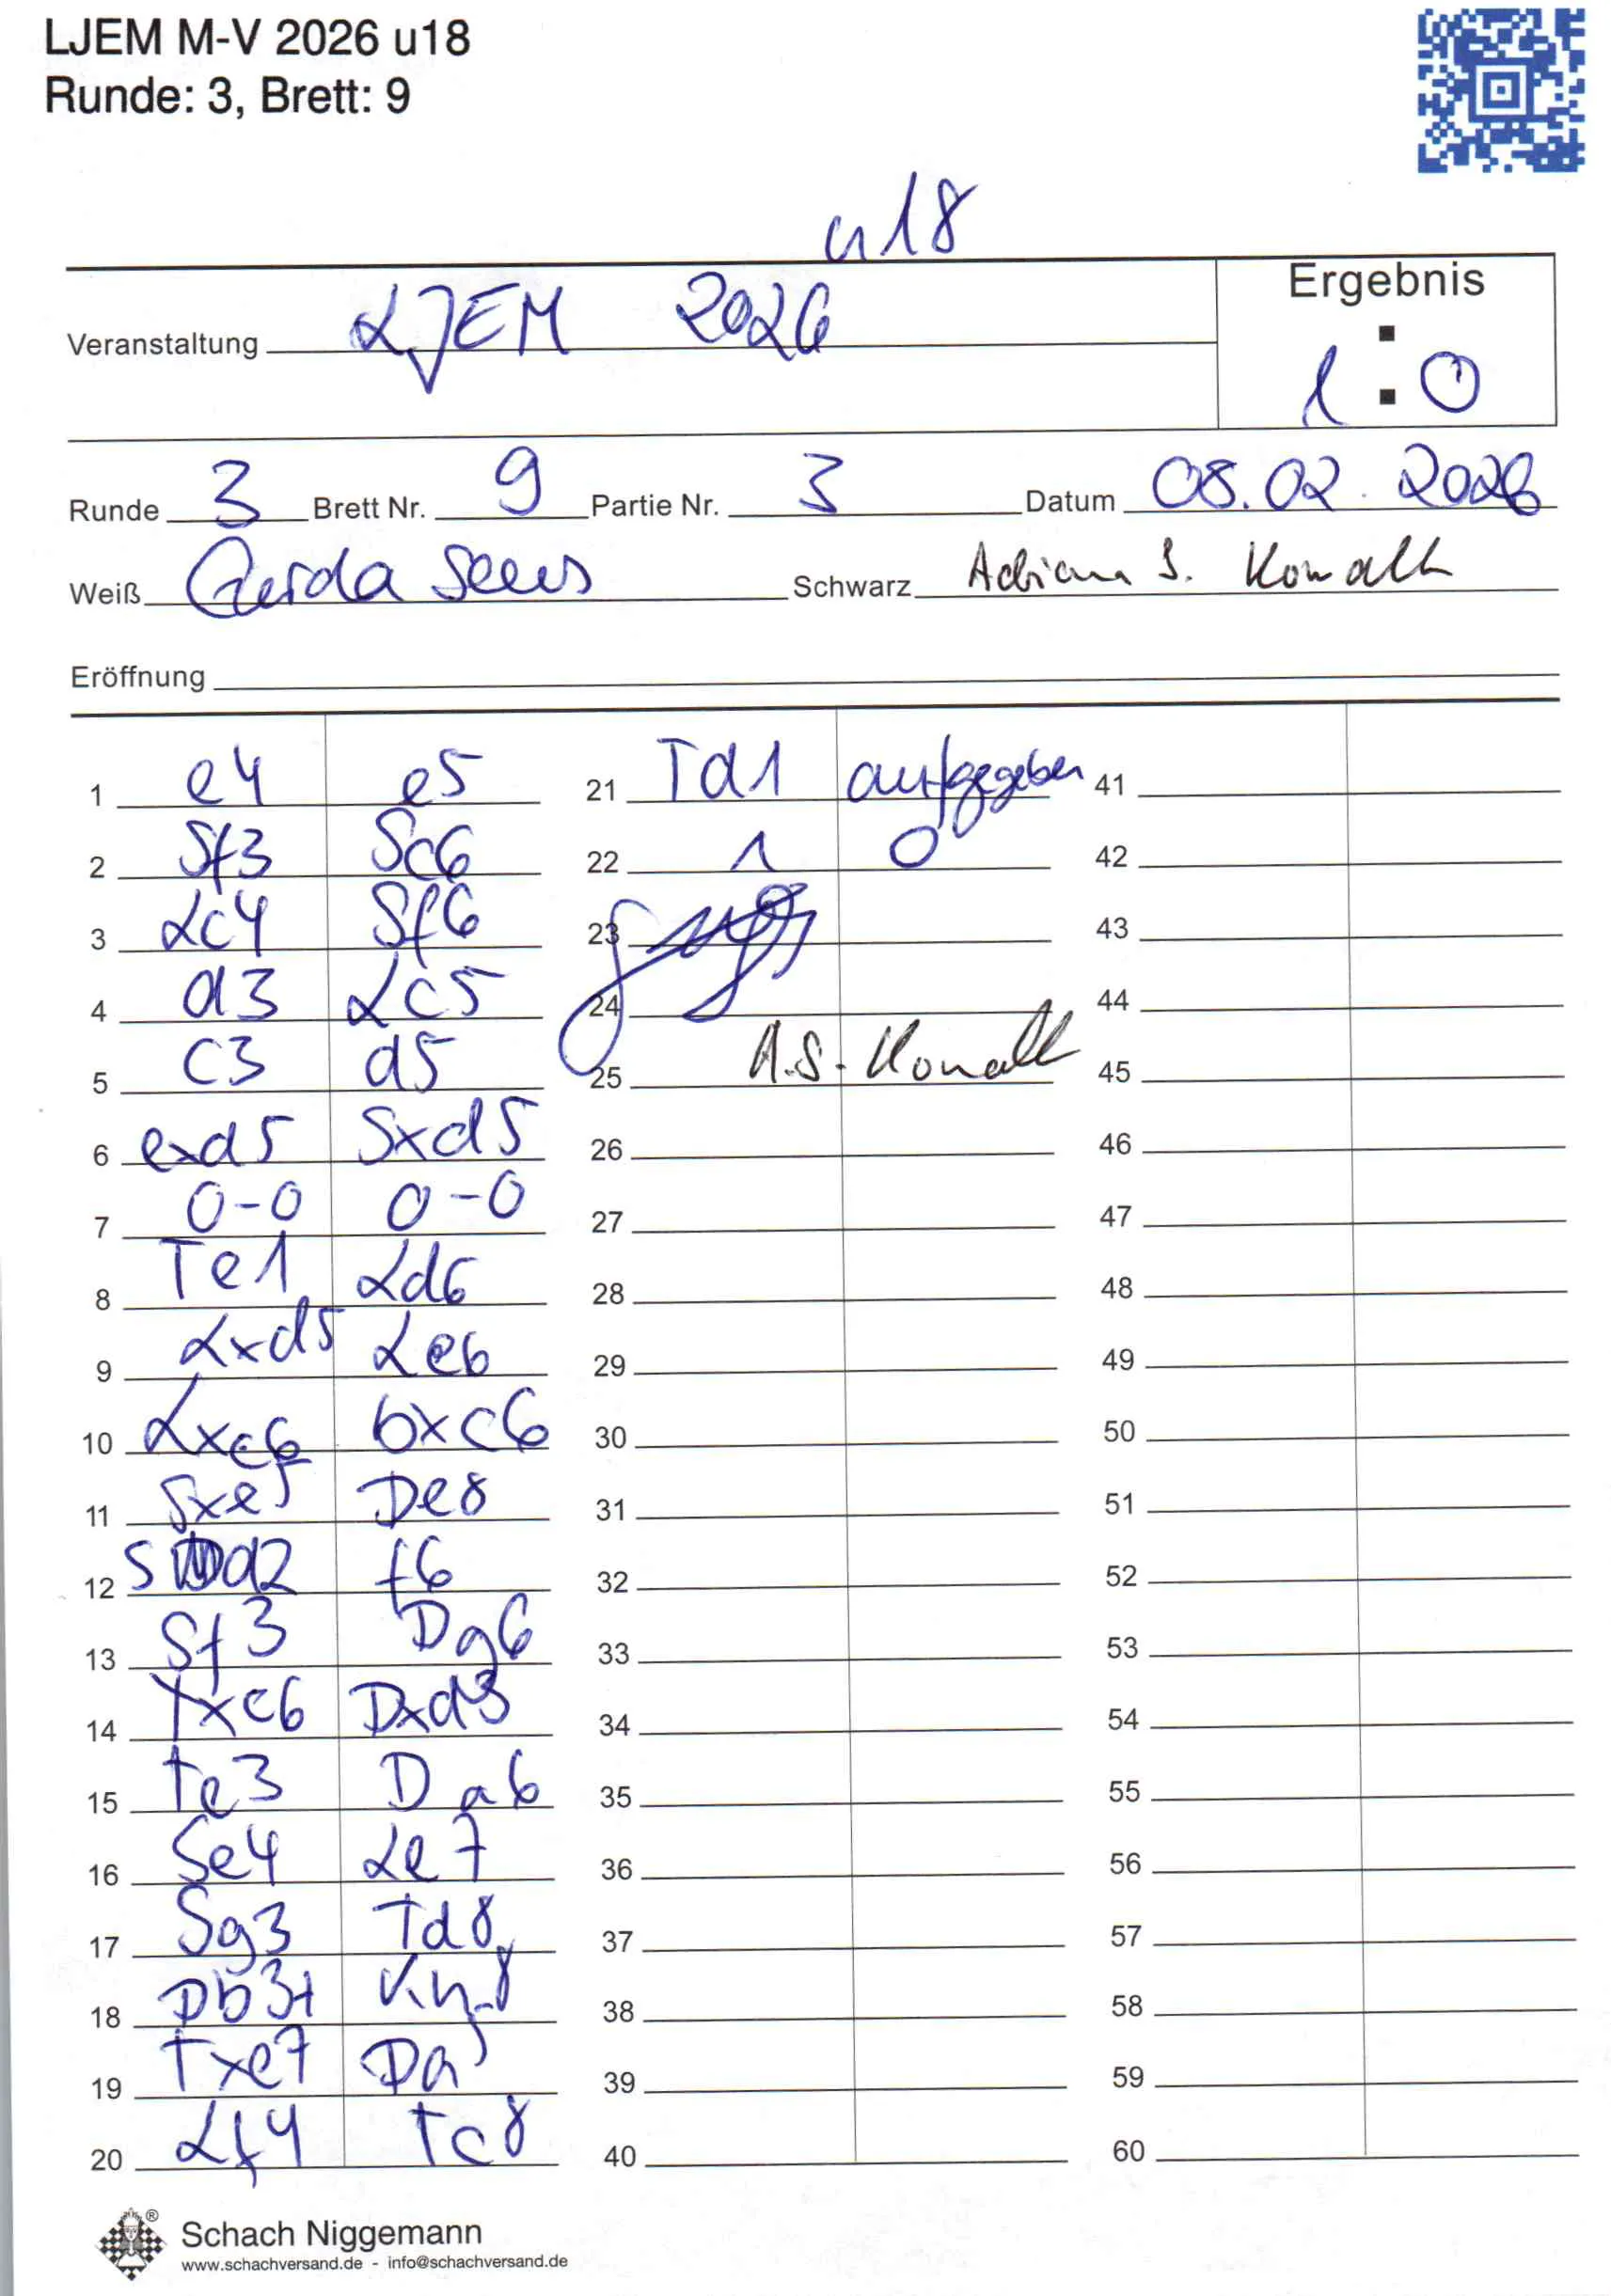 LJEM M-V 2026 u18
Runde: 3, Brett: 9
u18
Veranstaltung LJEM 2026
Ergebnis
1 : 0
Runde 3 Brett Nr. 9 Partie Nr. 3 Datum 08.02.2026
Weiß Gerda Schwarz Adrian S. Kowalk
Eröffnung
1 e4 e5
2 Sf3 Sc6
3 Lc4 Sf6
4 d3 Lc5
5 c3 d5
6 exd5 Sxd5
7 0-0 0-0
8 Te1 Ld6
9 Lxd5 Le6
10 Lxc6 bxc6
11 Sxe5 De8
12 Sd2 f6
13 Sf3 Dg6
14 Txe6 Dxd3
15 Te3 Da6
16 Se4 Le7
17 Sg3 Td8
18 Db3+ Kh8
19 Txe7 Da5
20 Lf4 Tc8
21 Td1 aufgegeben
22 1 0
23
24
25 A.S. Kowalk
26
27
28
29
30
31
32
33
34
35
36
37
38
39
40
41
42
43
44
45
46
47
48
49
50
51
52
53
54
55
56
57
58
59
60
®
Schach Niggemann
www.schachversand.de - info@schachversand.de